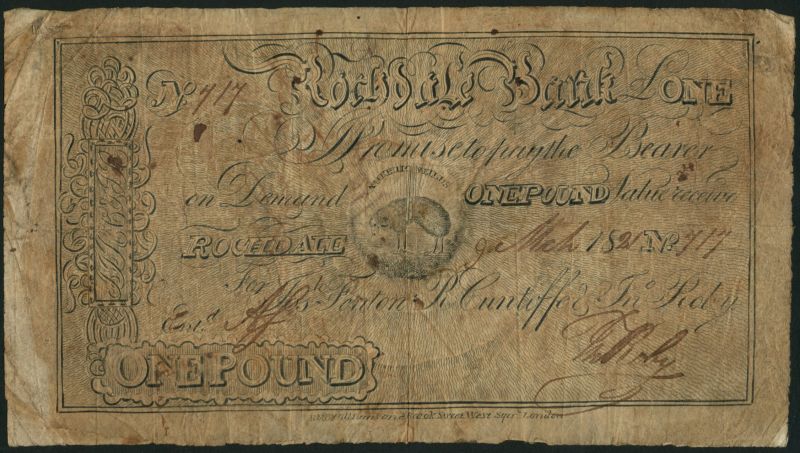 No 717 Rochdale Bank £ONE
I Promise to pay the Bearer
on Demand ONE POUND Value receiv
ROCHDALE 9 Mch 1821 No 717
For Jos Fenton R Cunliffe & Jno Roby
Entd
Jno Roby
ONE POUND
West Sqre London